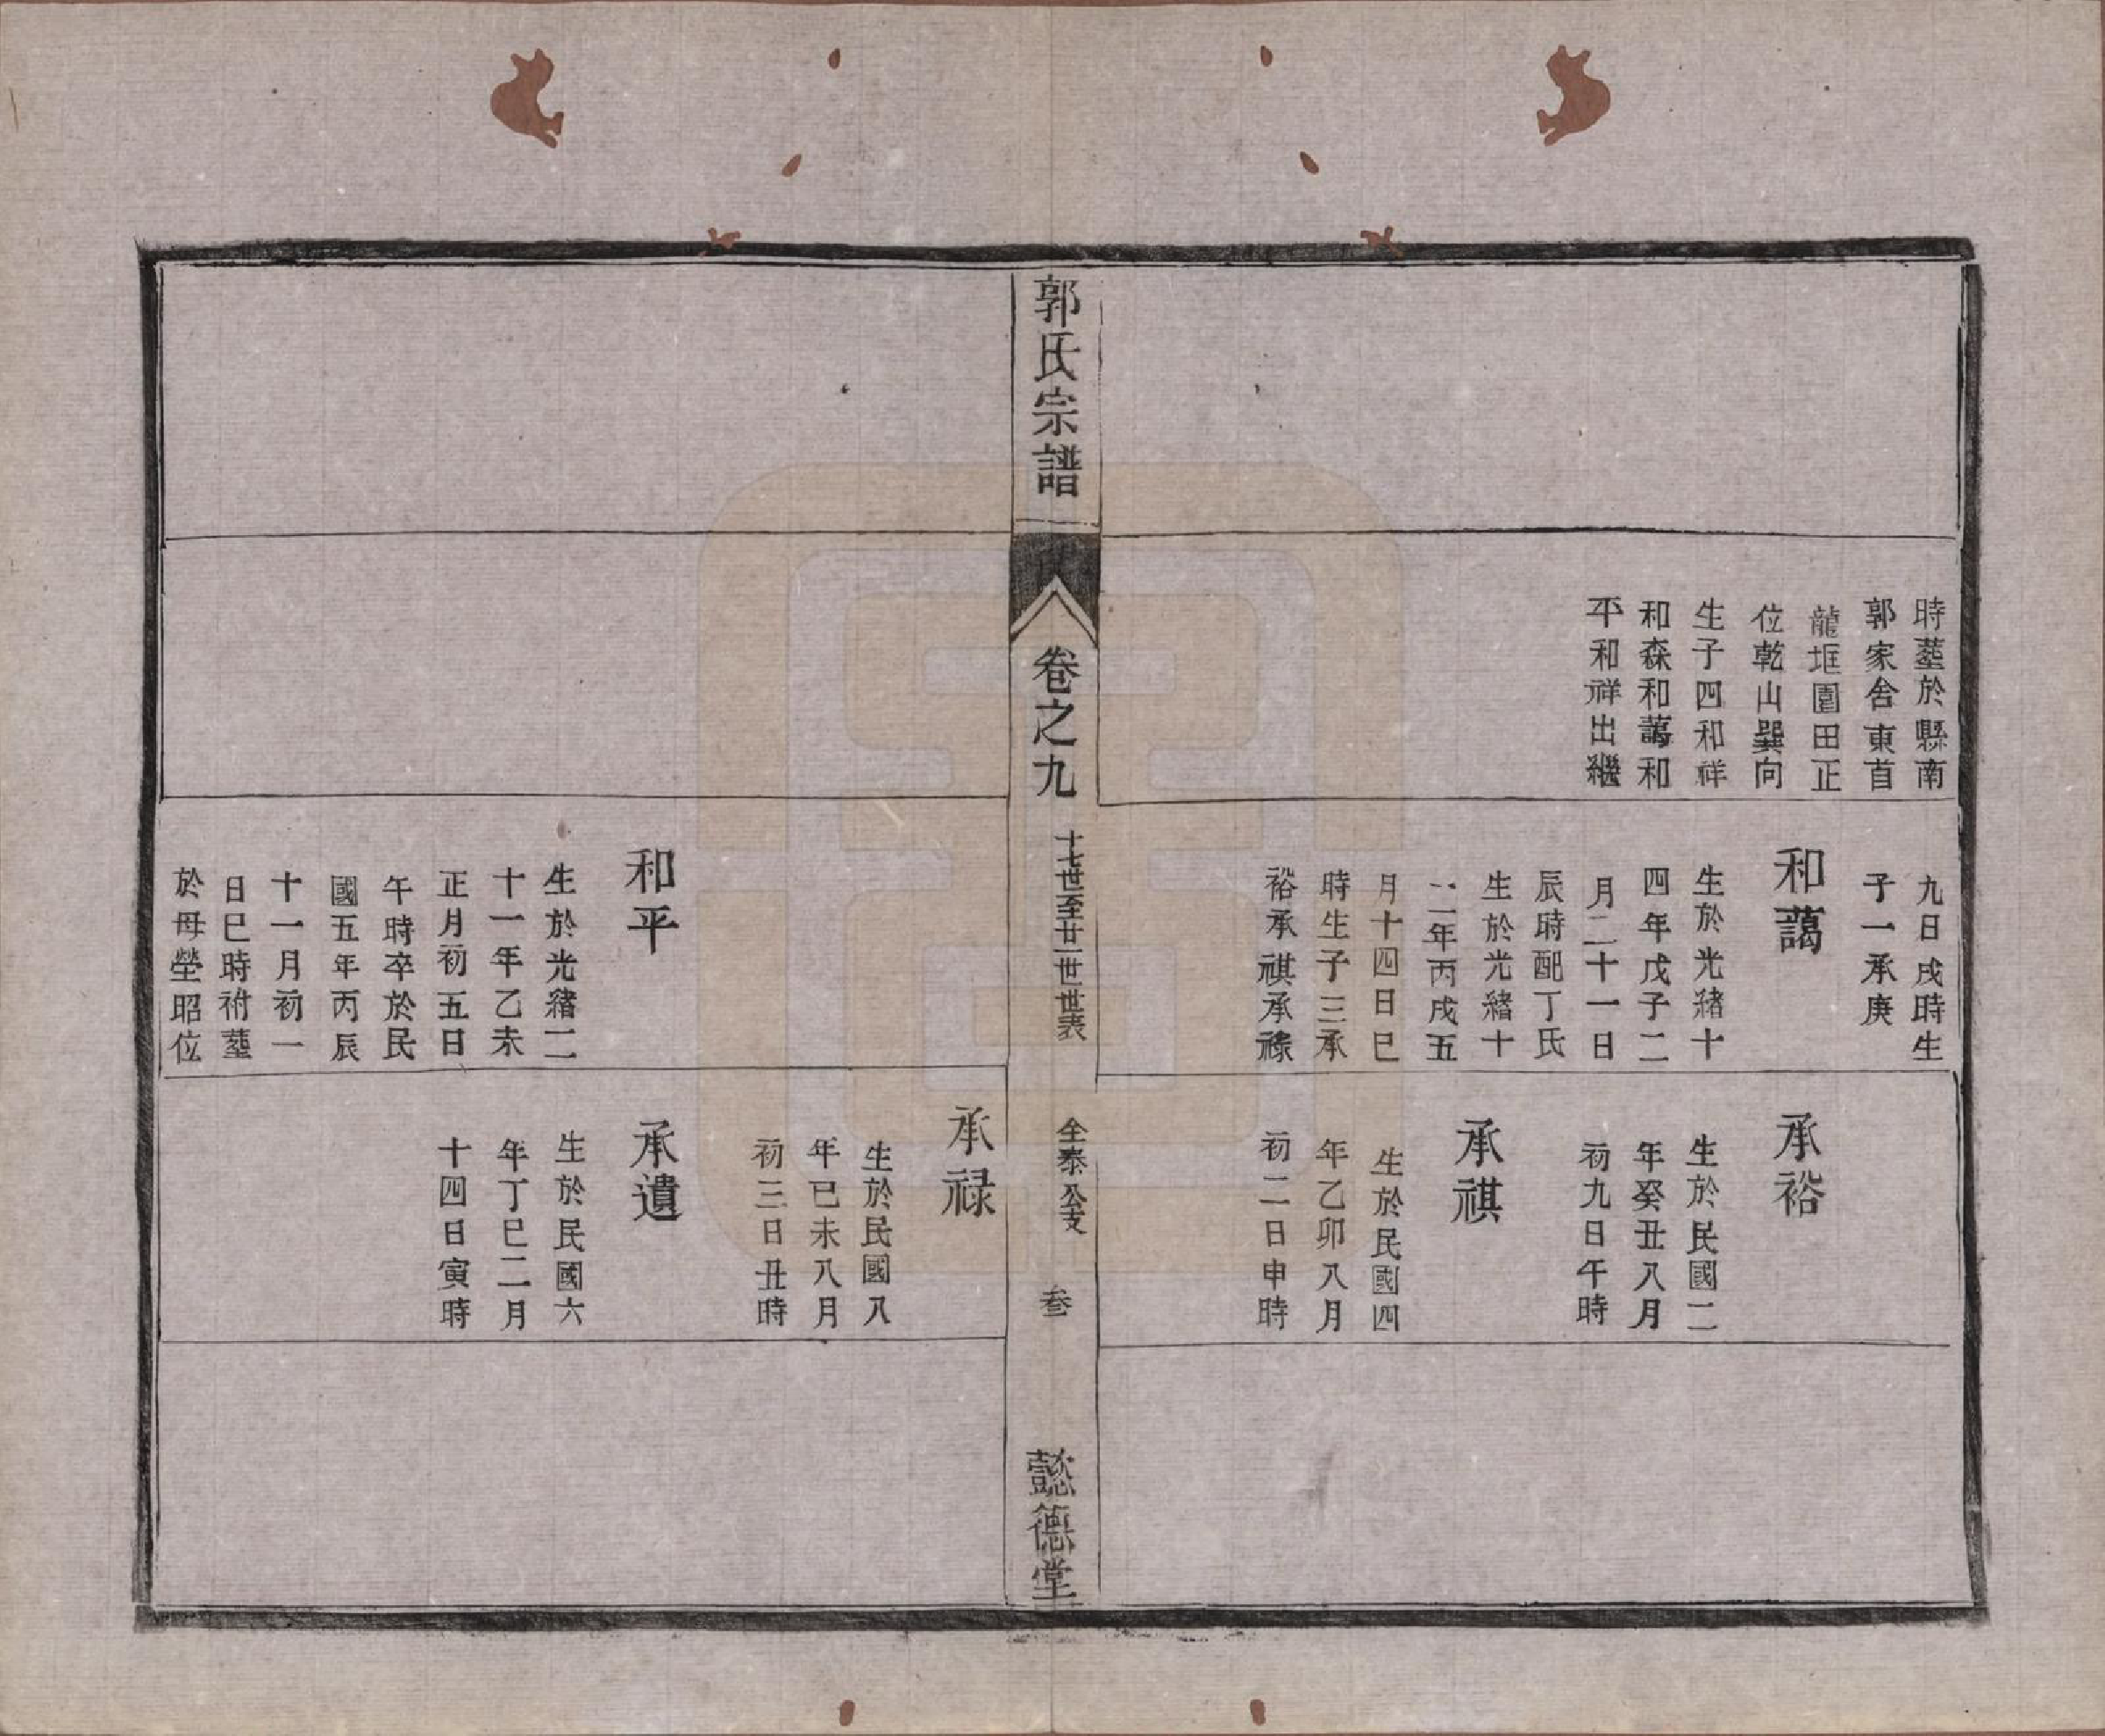 時塟於縣南
郭家舍東首
龍坵圍田正
位乾山巽向
生子四和祥
和森和藹和
平和祥出繼
九日戌時生
子一承庚
和藹
生於光緖十
四年戊子二
月二十一日
辰時配丁氏
生於光緖十
二年丙戌五
月十四日巳
時生子三承
裕承祺承祿
承裕
生於民國二
年癸丑八月
初九日午時
承祺
生於民國四
年乙卯八月
初二日申時
郭氏宗譜
卷之九
十七世至廿一世世表
全泰公支
叁
懿德堂
和平
生於光緖二
十一年乙未
正月初五日
午時卒於民
國五年丙辰
十一月初一
日巳時祔塟
於母塋昭位
承禄
生於民國八
年已未八月
初三日丑時
承遺
生於民國六
年丁巳二月
十四日寅時